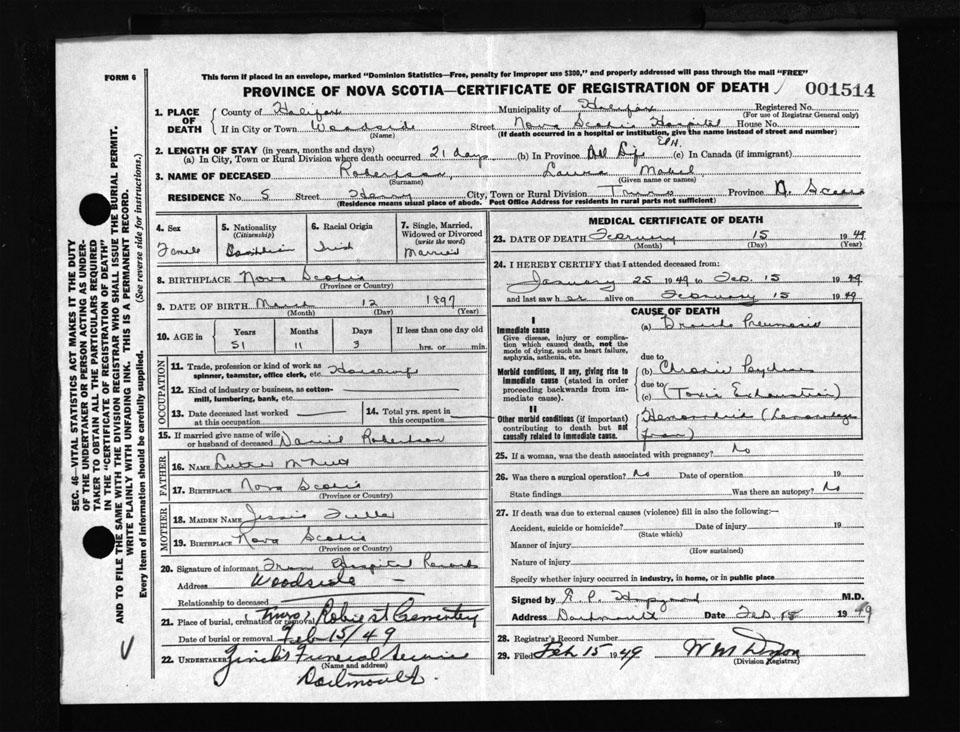 FORM 6
This form if placed in an envelope, marked "Dominion Statistics—Free, penalty for improper use $300," and properly addressed will pass through the mail "FREE"
PROVINCE OF NOVA SCOTIA—CERTIFICATE OF REGISTRATION OF DEATH
001514
SEC. 46—VITAL STATISTICS ACT MAKES IT THE DUTY
OF THE UNDERTAKER OR PERSON ACTING AS UNDER-
TAKER TO OBTAIN ALL THE PARTICULARS REQUIRED
IN THE "CERTIFICATE OF REGISTRATION OF DEATH"
AND TO FILE THE SAME WITH THE DIVISION REGISTRAR WHO SHALL ISSUE THE BURIAL PERMIT.
WRITE PLAINLY WITH UNFADING INK. THIS IS A PERMANENT RECORD.
Every item of information should be carefully supplied. (See reverse side for instructions.)
1. PLACE OF DEATH
County of Halifax Municipality of Halifax Registered No.
(For use of Registrar General only)
If in City or Town Woodside Street Nova Scotia Hospital House No.
(Name) (If death occurred in a hospital or institution, give the name instead of street and number)
2. LENGTH OF STAY (in years, months and days)
(a) In City, Town or Rural Division where death occurred 21 days (b) In Province All Life (c) In Canada (if immigrant)
3. NAME OF DECEASED Robertson, Laura Mabel
(Surname) (Given name or names)
RESIDENCE No. 5 Street City, Town or Rural Division Truro Province N. Scotia
(Residence means usual place of abode. Post Office Address for residents in rural parts not sufficient)
4. Sex Female
5. Nationality (Citizenship)
6. Racial Origin Irish
7. Single, Married, Widowed or Divorced (write the word) Married
8. BIRTHPLACE Nova Scotia
(Province or Country)
9. DATE OF BIRTH March 12 1897
(Month) (Day) (Year)
10. AGE Years Months Days If less than one day old
51 11 3 hrs. or min.
OCCUPATION
11. Trade, profession or kind of work as spinner, teamster, office clerk, etc. Housewife
12. Kind of industry or business, as cotton-mill, lumbering, bank, etc.
13. Date deceased last worked at this occupation
14. Total yrs. spent in this occupation
15. If married give name of wife or husband of deceased Daniel Robertson
FATHER
16. NAME Luther
17. BIRTHPLACE Nova Scotia
(Province or Country)
MOTHER
18. MAIDEN NAME Jessie Fuller
19. BIRTHPLACE Nova Scotia
(Province or Country)
20. Signature of informant From Hospital Records
Address Woodside
Relationship to deceased
21. Place of burial, cremation or removal (Truro) Robie st Cemetery
Date of burial or removal Feb 15/49
22. UNDERTAKER Zinck's Funeral Service
(Name and address)
Dartmouth.
MEDICAL CERTIFICATE OF DEATH
23. DATE OF DEATH February 15 1949
(Month) (Day) (Year)
24. I HEREBY CERTIFY that I attended deceased from:
January 25 1949 to Feb. 15 1949
and last saw her alive on February 15 1949
CAUSE OF DEATH
I
Immediate cause
Give disease, injury or complication which caused death, not the mode of dying, such as heart failure, asphyxia, asthenia, etc.
(a) Broncho Pneumonia
due to
Morbid conditions, if any, giving rise to immediate cause (stated in order proceeding backwards from immediate cause).
(b) Chronic
due to
(c) (Toxic Exhaustion)
II
Other morbid conditions (if important) contributing to death but not causally related to immediate cause.
25. If a woman, was the death associated with pregnancy? No
26. Was there a surgical operation? No Date of operation 19
State findings Was there an autopsy? No
27. If death was due to external causes (violence) fill in also the following:—
Accident, suicide or homicide? Date of injury 19
(State which)
Manner of injury
(How sustained)
Nature of injury
Specify whether injury occurred in industry, in home, or in public place
Signed by M.D.
Address Dartmouth Date Feb. 15 1949
28. Registrar's Record Number
29. Filed Feb 15 1949
(Division Registrar)